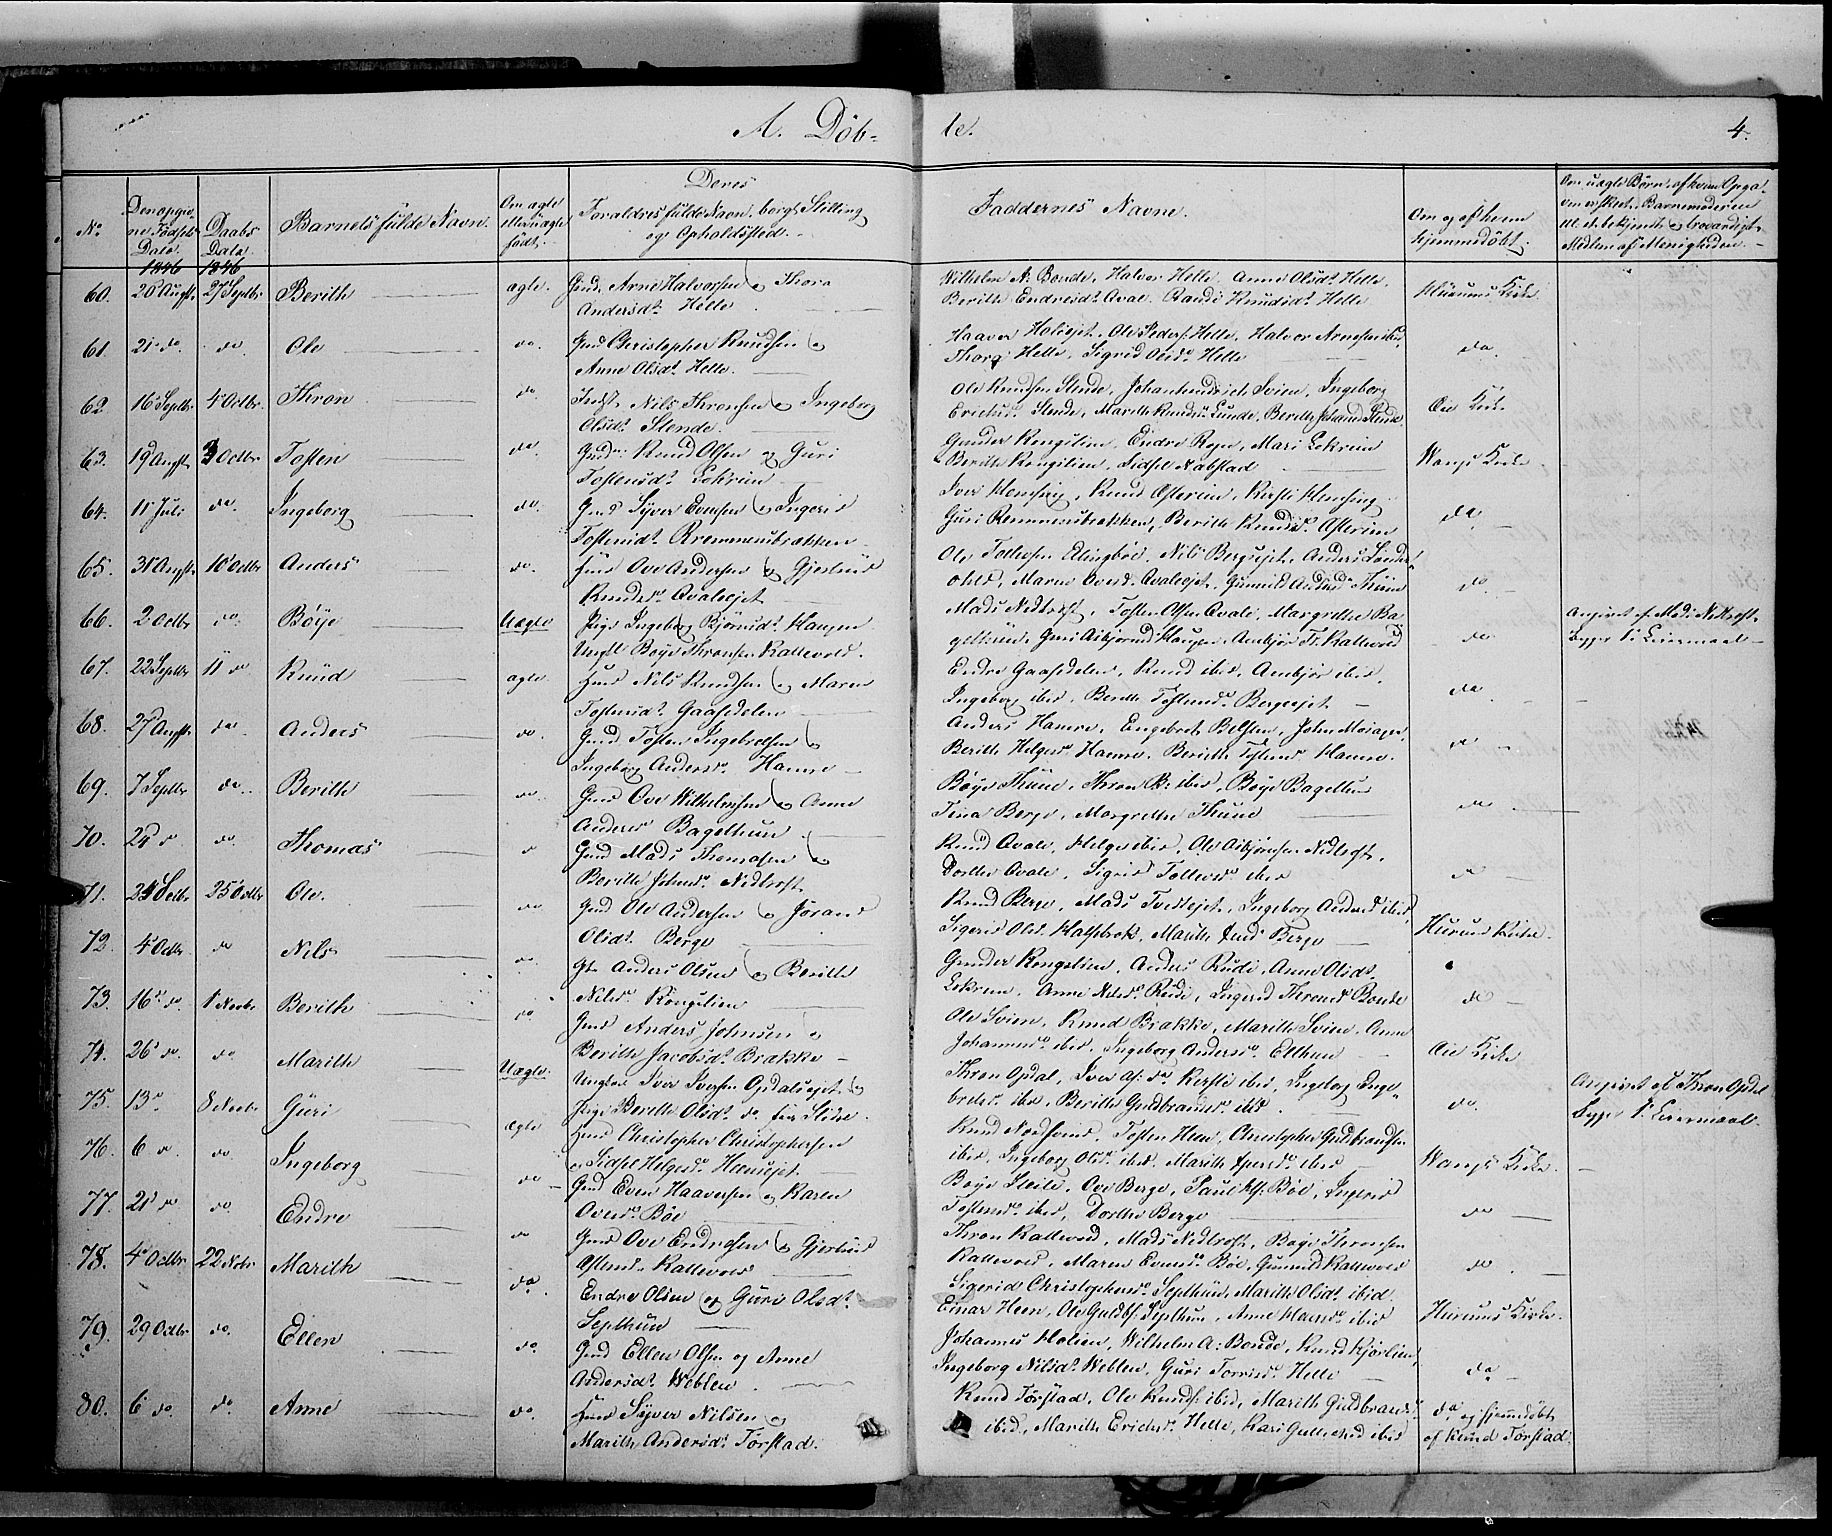 A. Döb- te. 4.
No
Den opgivne Fødsels Dato.
Daabs Dato
Barnets fulde Navn.
Om ægte eller uægte født.
Deres Forældres fulde Navn, borgl Stilling og Opholdssted.
Faddernes Navne.
Om og af hvem hjemmedöbt.
Om uægte Børn, af hvem Opgaven er skeet. Barnemoderen
1846 1846
60. 20 Augst. 27 Septbr. Berith ægte. Gmd. Arne Halvorsen og Thora
Andersdr. Helle
Wilhelm A. Bonde, Halvor Helle, Anne Olsdr. Helle,
Berith Endresdr. Avale, Randi Knudsdr. Helle
Hurums Kirke.
61. 21 do. do. Ole do. Gmd Christopher Knudsen og
Anne Olsdr. Helle.
Haaver Holiejet, Ole Peders. Helle, Halvor Arnesen ibid
Thora Helle, Sigrid Olsdr. Helle
do.
62 16 Septbr. 4 Octbr. Thron do. Indst. Nils Thronsen og Ingeborg
Olsdr. Stende.
Ole Knudsen Stende, Johan hendrich Svien, Ingeborg
Ericksd. Stende, Marith Knudsdr. Lunde, Berith Johansd Stende
Øie Kirke
63. 19 Augst. 3 Octbr. Tosten do. Gmd. Knud Olsen og Guri
Tostensdr. Lekrein
Gunder Kongslien, Endre Rogn, Mari Lekrein
Berith Kongslien, Sidsel Nabstad
Wangs Kirke
64. 11 Juli do. Ingeborg do. Gmd Syver Evensen og Ingerid
Tostensdr. Remmensbrækken
Iver Hemsing, Knud Østerim, Kirsti Hemsing
Guri Remmensbrækken, Berith Knudsd. Østerim
do
65. 31 Augst. 10 Octbr. Anders do. Huusmd Ove Andersen og Gjertrud
Knudsdr. Avaleejet
Ole Tollefsen Elingbøe, Nils Bergseget, Anders Lunde
do
66. 2 Octbr. do. Bøye Uægte Pige Ingeborg Bjørnsdr. Haugen
Ungk. Boye Thronsen Kattevold.
Mads Nedtroft, Tosten Olsen Avale, Margrethe Ba-
gethun, Guri Asbjørnsd Haugen, Anbjør Th. Kattevold
do
Angivet af Mads Nedtroft.
begges 1te Leiermaal
67. 22 Septbr. 11 do Knud ægte. Huusmd Nils Knudsen og Maren
Tostensdr. Gaasedelen
Endre Gaasedelen, Knud ibid, Anbjør ibid,
Ingeborg ibid, Berith Tostensdr. Bergeejet
do
68. 27 Augst. do Anders do. Gmd Tosten Ingebretsen og
Ingeborg Andersdr. Hamre
Anders Hamre, Engebret Belsten, John Mosager,
Berith Helgesd. Hamre, Berith Tostensd. Hamre.
do
69. 7 Septbr. do. Berith do. Gmd Ove Wilhelmsen og Anne
Andersd. Bagethun
Bøye Thune, Thron B. ibid, Bøye Bagethun
Tina Berge, Margrethe Thune
do
70. 21 do. do. Thomas do Gmd Mads Thomasen og
Berith Johnsdr. Nedtroft
Knud Avale, Helge ibid, Ole Asbjørnsen Nedtroft,
Dorthe Avale, Sigrid Tollevsdr. ibid
do
71. 25 Octbr. Ole. do Gmd Ole Andersen og Jorand
Olsdr. Berge
Knud Berge, Mads Tvedtejet, Ingeborg Andersd ibid
Sigerid Olsd. Halsbrek, Marith Berge
Hurums Kirke.
72. 4 Octbr. do Nils do. Gt. Anders Olsen og Berith
Nilsdr. Kongslien
Gunder Kongslien, Anders Rudi, Anne Olsdr.
Lekrein. Anne Nilsdr. Rudi, Ingerid Thronsd Bonde
do
73. 16 do. 1 Novbr. Berith do. Gmd Anders Johnsen og
Berith Jacobsdr. Brække
Ole Svien, Knud Brække, Marith Svien, Anne
Johannesdr. ibid, Ingeborg Andersdr. Elthun
Øie Kirke
74. 26 do. do Marith Uægte. Ungkarl Iver Iversen Opdalsejet og
Pige Berith Olsdr. do fra Slidre.
Thron Opdal, Iver As. do, Kersti ibid, Ingeborg Enge-
bretsd. ibid, Berith Guldbrandsdr. ibid.
do.
Angivet af Thron Opdal
begges 1te Leiermaal.
75. 13 do 8 Novbr. Guri ægte Huusmd Christopher Christophersen
og Sidsel Helgesdr. Heensejet.
Knud Nordsveen, Tosten Heen, Christopher Guldbrandsen
ibid, Ingeborg Olsdr. ibid, Marith Iversdr. ibid
Wangs Kirke.
76. 6 do do. Ingeborg do Gmd Even Haaversen og Karen
Ovesdr. Bøe
Boye Steile, Ove Berge, Paul As. Bøe, Ingerid
Tostensdr. ibid, Dorthe Berge
do
77. 21 do do. Endre do Gmd Ove Endresen og Gjertrud
Ostensdr. Kattevold
Thron Kattevold, Mads Nedtroft, Boye Thronsen
Kattevold, Maren Evensdr. Bøe, Gunnild Kattevold
do
78. 4 Octbr. 22 Novbr. Marith do. Endre Olsen og Guri Olsdr.
Septhun
Sigerid Christophersdr. Septhun, Marith Olsdr. ibid.
Einar Heen, Ole Guldbs. Septhun, Anne ibid
Hurums Kirke.
79. 29 Octbr. do. Ellen do. Gmd Ellen Olsen og Anne
Andersdr. Weblen
Johannes Holien, Wilhelm A. Bonde, Knud Kjørlien,
Ingeborg Nilsdr. Weblen, Guri Torrisdr. Helle
do
80. 6 do. do. Anne do. Huusmd Syver Nilsen og
Marith Andersdr. Torstad.
Knud Torstad, Ole Knuds. ibid, Marith Guldbrands
ibid, Marith Ericksdr. Helle, Kari Gulliksd ibid
do og hjemmedöbt
af Knud Torstad